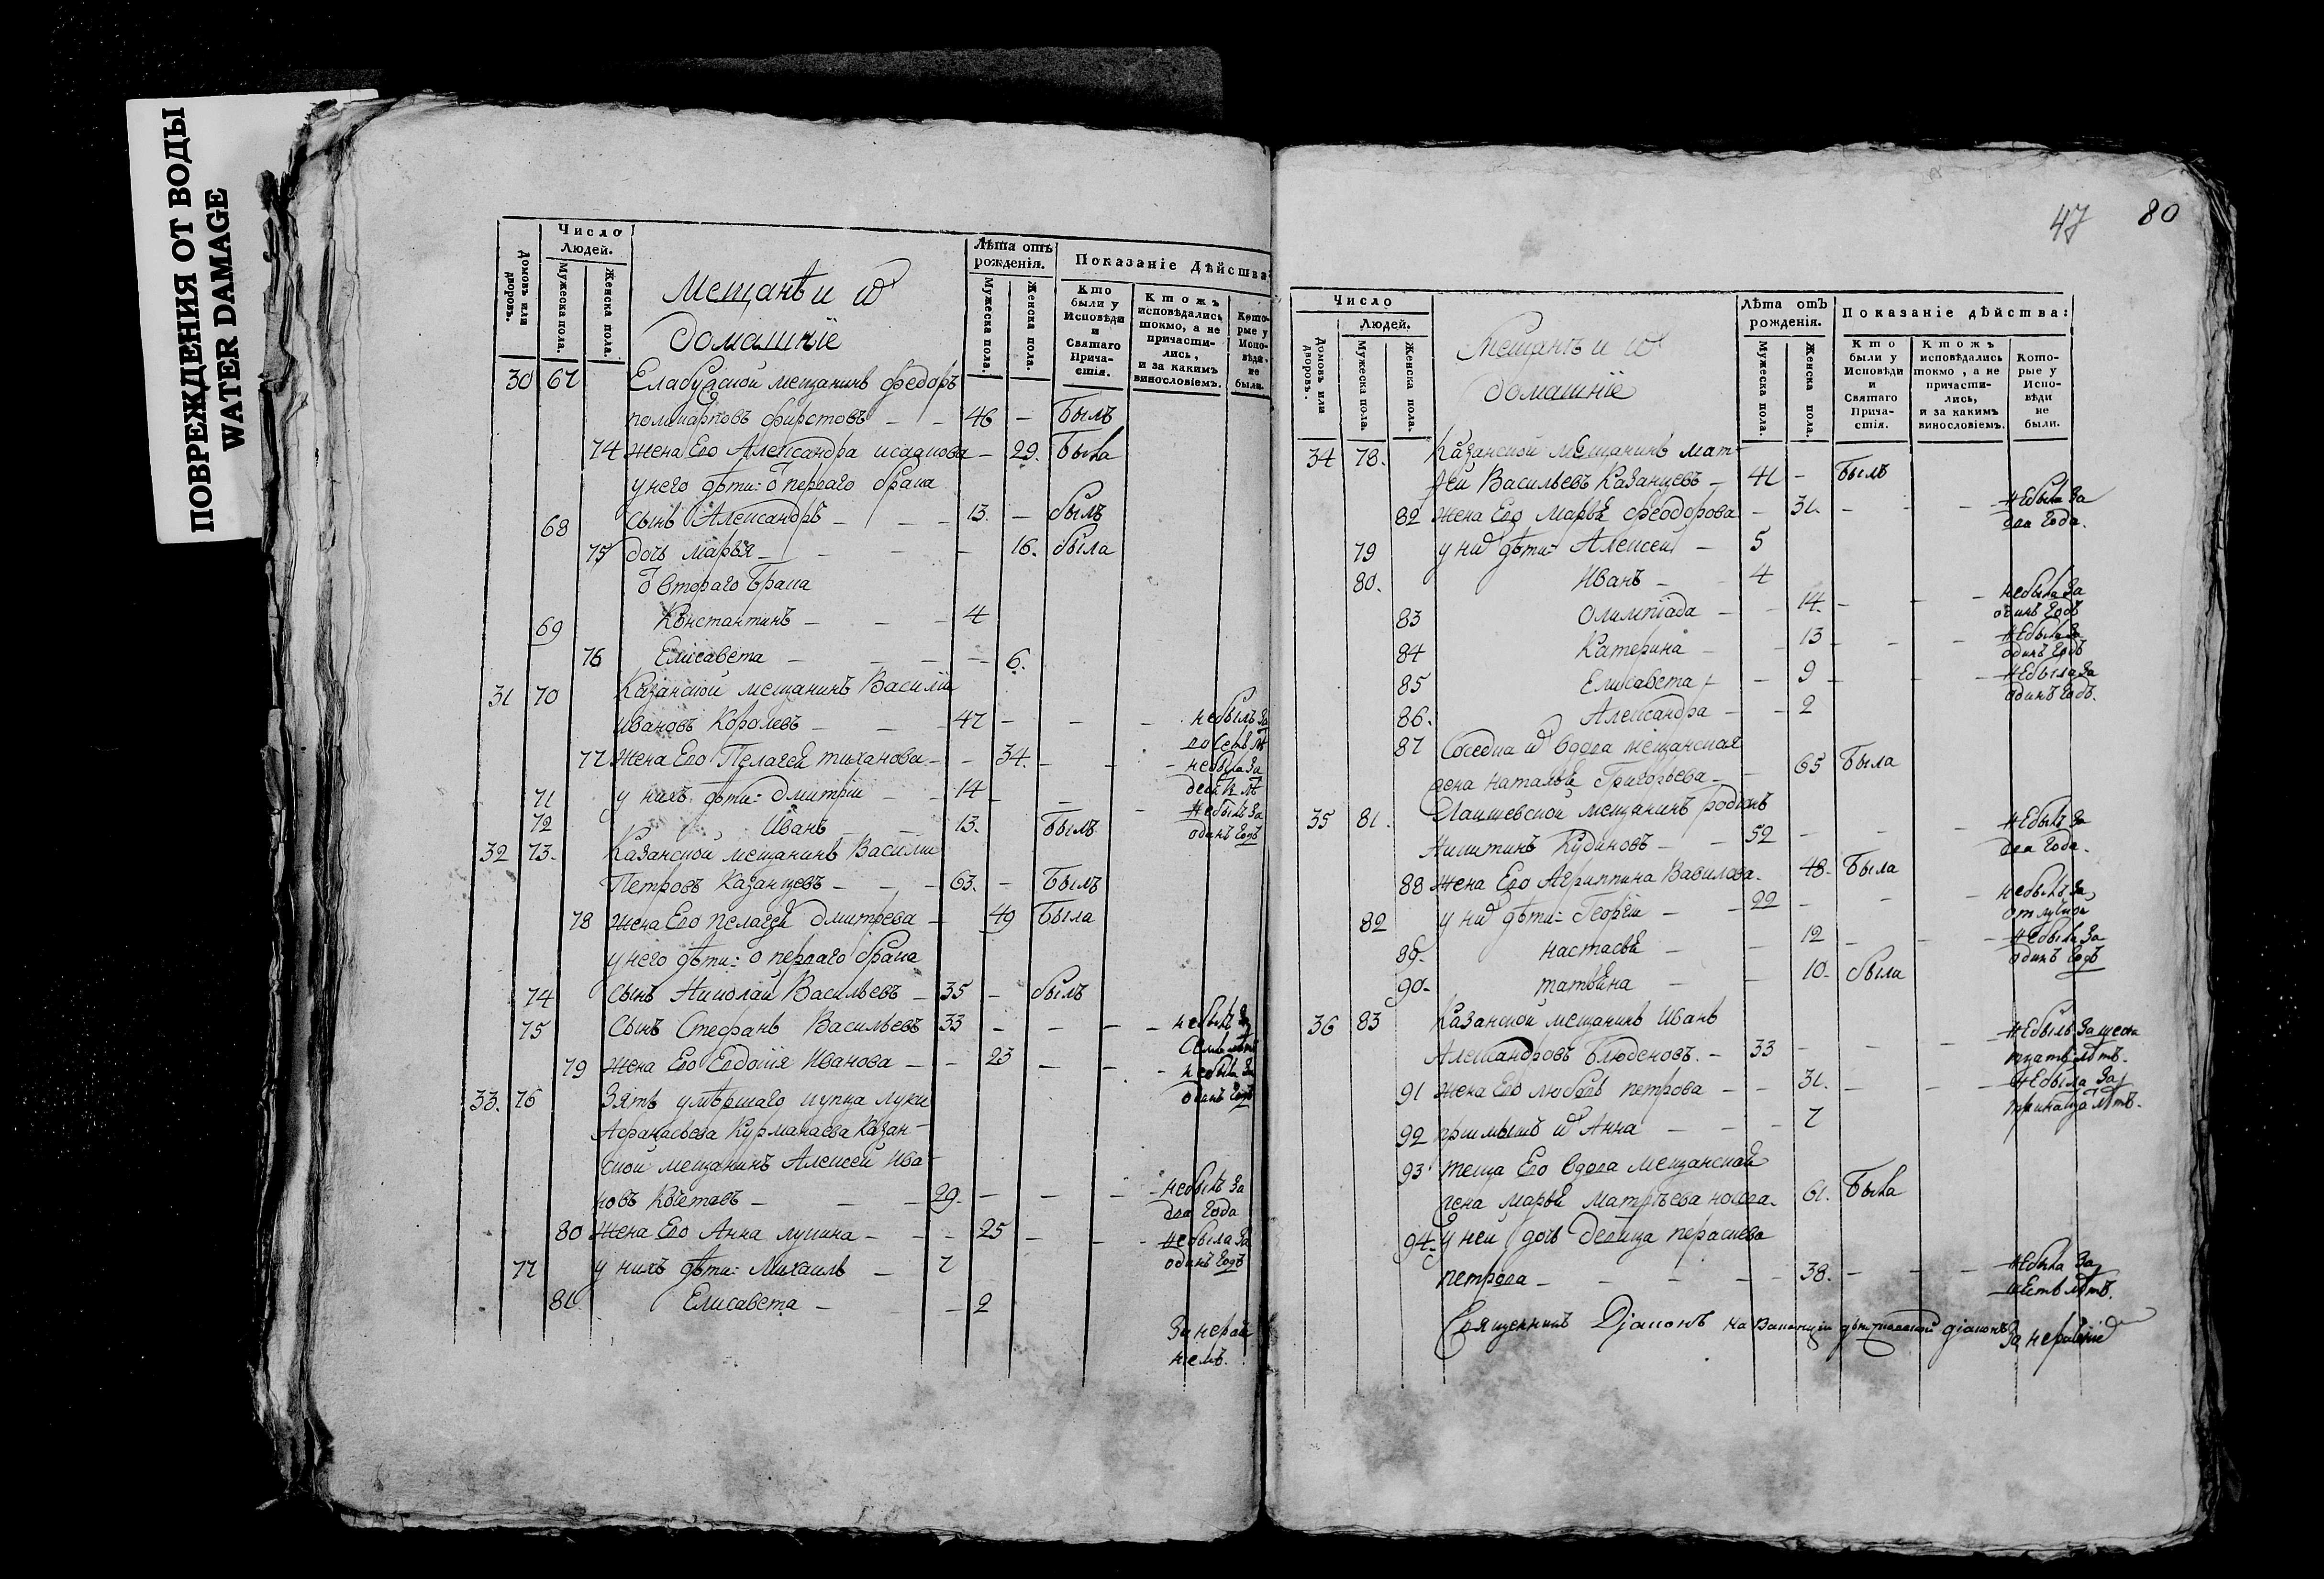 ПОВРЕЖДЕНИЯ ОТ ВОДЫ
WATER DAMAGE
Число Людей.
Домовъ или дворовъ.
Мужеска пола.
Женска пола.
Мещанѣ и
домашніе
Лѣта отъ рожденія.
Мужеска пола.
Женска пола.
Показаніе дѣйства
Кто были у Исповѣди и Святаго Причастія.
Ктожъ исповѣдались токмо, а не причастились, и за какимъ винословіемъ.
Которые у Исповѣди не были.
30 67 Елабугской мещанинъ Федоръ
46 – Былъ
74 Жена Его Александра – 29. Была
у него дѣти: перваго брака
68 Сынъ Александръ – – – 13. – былъ
75 дочь марья – – – 16. была
втораго брака
69 Константинъ – – – 4
76 Елисавета – – – – 6.
31 70 Казанской мещанинъ Василіи
ивановъ Королевъ – – – 47 – – – не былъ За
77 Жена Его Пелагея тиханова – – 34. – – – не была За
71 у нихъ дѣти: дмитріи – – 14 – – – не былъ За
72 Иванъ – – 13. Былъ одинъ Годъ
32 73. Казанской мещанинъ Василіи
Петровъ Казанцевъ – – – 63. – Былъ
78 Жена Его пелагея дмитрева – 49 Была
у него дѣти: перваго брака
74 Сынъ Николаи Васильевъ – 35 – былъ
75 Сынъ Стефанъ Васильевъ 33 – – – – не былъ За
79 Жена Его Евдокія Иванова – – 23 – – – не была За
одинъ Годъ
33. 76 Зять умѣршаго купца луки
Афанасьева Курманаева Казан-
ской мещанинъ Алексеи Ива-
новъ – – – 29. – – – – не былъ За
два Года
80 Жена Его Анна лукина – – – 25 – – – не была За
одинъ Годъ
77 у нихъ дѣти: Михаилъ – 7
81 Елисавета – – 2
47 80
Число
Людей.
Домовъ или дворовъ.
Мужеска пола.
Женска пола.
Мещанѣ и
домашніе
Лѣта отъ рожденія.
Мужеска пола.
Женска пола.
Показаніе дѣйства:
Кто были у Исповѣди и Святаго Причастія.
Ктожъ исповѣдались токмо, а не причастились, и за какимъ винословіемъ.
Которые у Исповѣди не были.
34 78. Казанской мещанинъ мат-
феи Васильевъ Казанцевъ – 41 – Былъ
82 Жена Его Марья Феодорова – 31. – – – не была За
два Года.
79 у них дѣти: Алексеи – 5
80. Иванъ – 4
83 Олимпіада – – 14. – – – не была За
одинъ Годъ
84 Катерина – – 13 – – – не была За
одинъ Годъ
85 Елисавета – – 9 – – – не была За
одинъ Годъ.
86. Александра – – 2
87 вдова мещанская
жена наталья Григорьева – – 65 Была
35 81. Лаишевской мещанинъ родіонъ
Никитинъ Кудиновъ – – 52 – – – не былъ За
два Года.
88 Жена Его Агриппина Вавилова. 48. Была
82 у них дѣти: Георгіи – – 22 – – – не былъ За
89. настасья – – 12 – – – не была За
одинъ Годъ
90. татьяна – – 10. была
36 83 Казанской мещанинъ Иванъ
Александровъ – 33 – – – не былъ За
лѣтъ.
91 Жена Его любовь петрова – – 31. – – – не была За
лѣтъ.
92 Анна – – – 7
93 теща Его вдова мещанская
жена марья матвѣева 61. Была
94. У неи дочь девица
петрова – – – – – 38. – – – не была За
шесть лѣтъ.
Священникъ Діаконъ